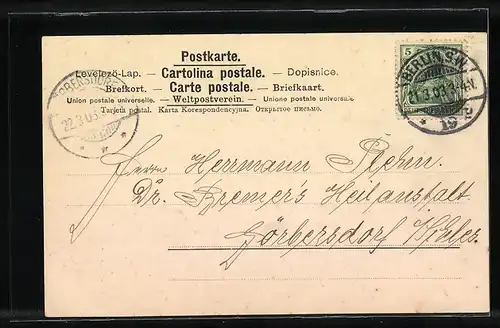 Postkarte.
Levelező-Lap. — Cartolina postale. — Dopisnice.
Brefkort. — Carte postale. — Briefkaart.
Union postale universelle. — Weltpostverein. — Unione postale universale
Tarjeta postal. Karta Korespondencyjna. Открытое письмо.
5
BERLIN S.W.
19
GÖRBERSDORF
22.3.03
Herrn Herrmann
Dr. Bremer's Heilanstalt
Görbersdorf i/Schles.